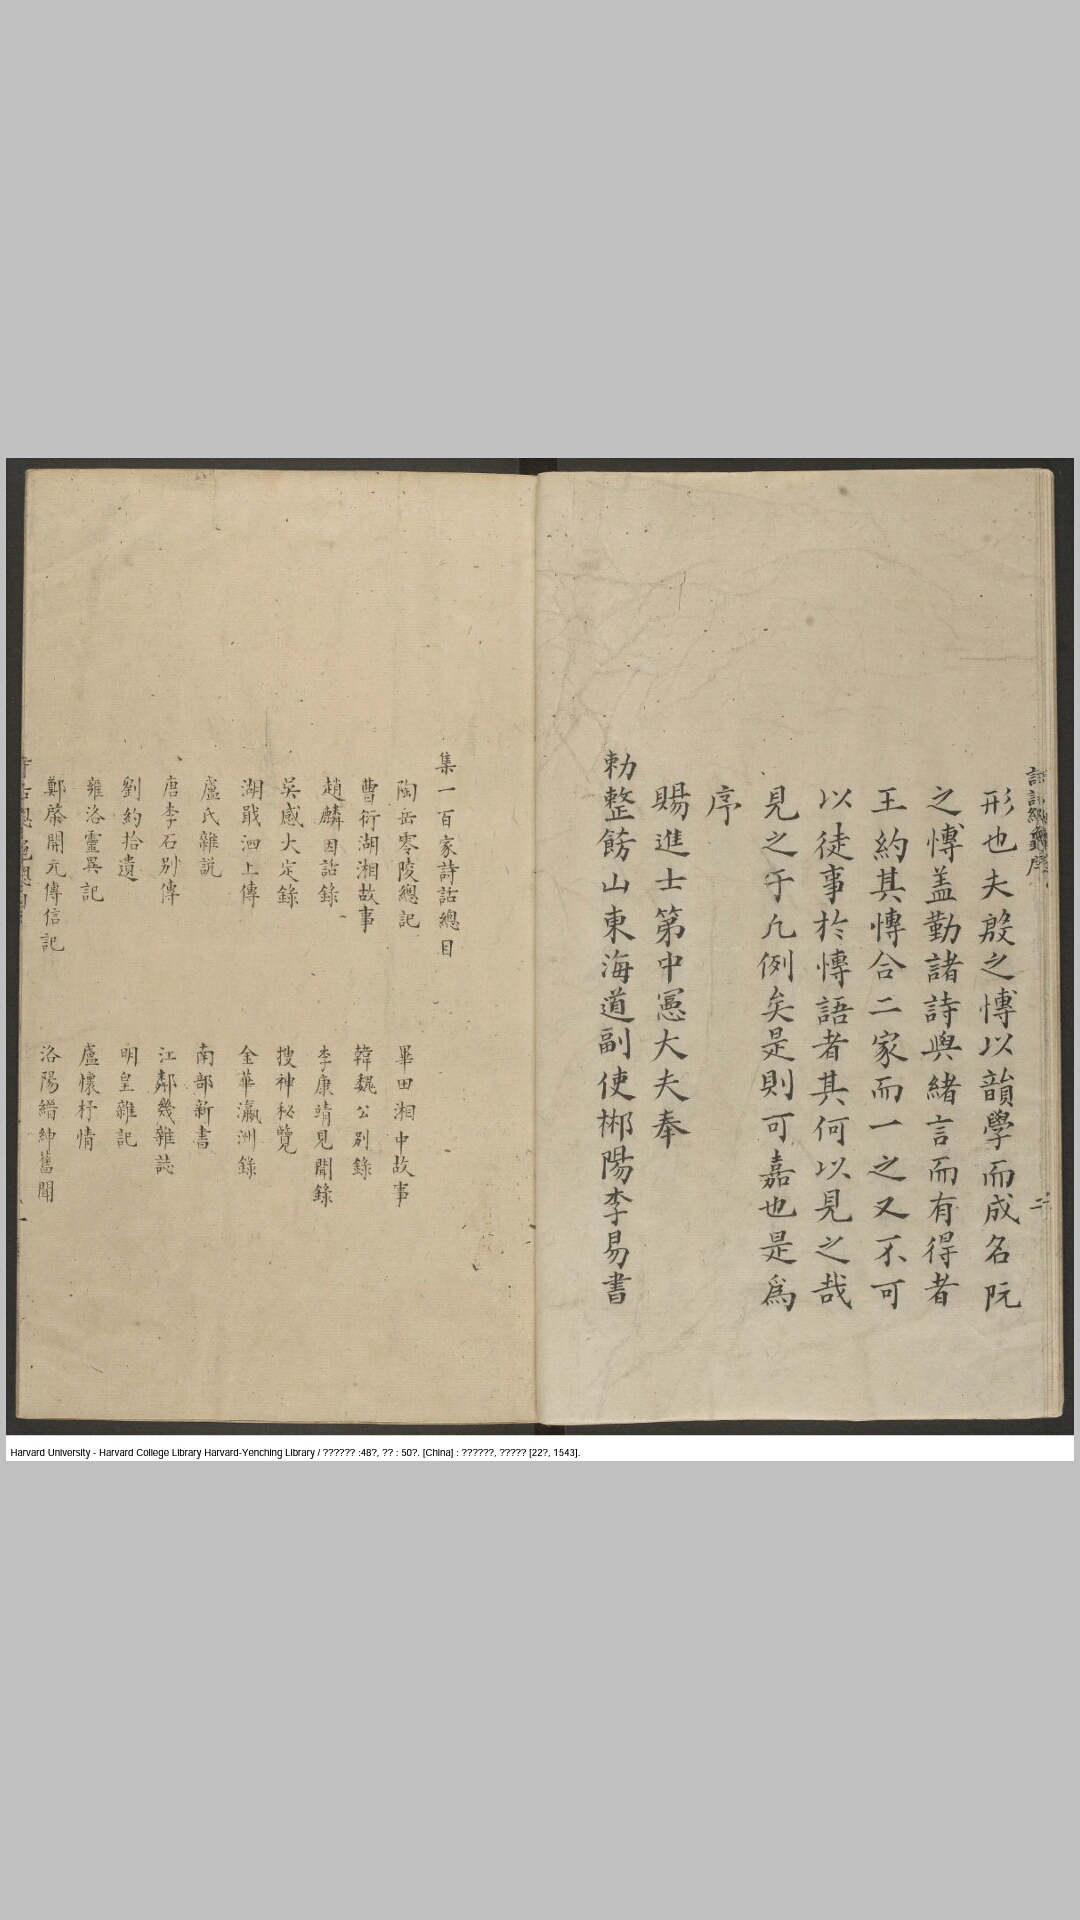 形也夫殷之愽以韻學而成名阮
之愽盖勤諸詩與緒言而有得者
王約其愽合二家而一之又不可
以徒事於愽語者其何以見之哉
見之于凡例矣是則可嘉也是爲
序
賜進士第中憲大夫奉
勑整飭山東海道副使郴陽李易書
集一百家詩話總目
陶岳零陵總記
畢田湘中故事
曹衍湖湘故事
韓魏公别錄
趙麟因話錄
李康靖見聞錄
吳感大定錄
搜神秘覽
湖戢泗上傳
金華瀛洲錄
盧氏雜説
南部新書
唐李石别傳
江鄰幾雜誌
劉約拾遺
明皇雜記
雍洛靈異記
盧懷杼情
鄭棨開元傳信記
洛陽縉紳舊聞
Harvard University - Harvard College Library Harvard-Yenching Library / ?????? :48?, ?? : 50?. [China] : ??????, ????? [22?, 1543].